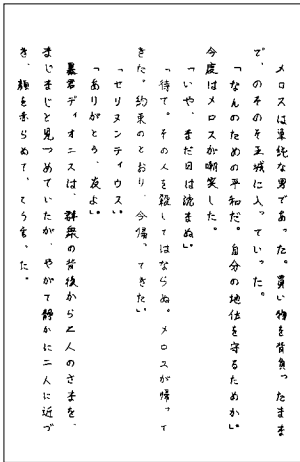 メロスは単純な男であった。買い物を背負ったまま
で、のそのそ王城に入っていった。
「なんのための平和だ。自分の地位を守るためか」。
今度はメロスが嘲笑した。
「いや、まだ日は沈まぬ」。
「待て。その人を殺してはならぬ。メロスが帰って
きた。約束のとおり、今、帰ってきた」。
「セリヌンティウス」。
「ありがとう、友よ」。
暴君ディオニスは、群衆の背後から二人のさまを、
まじまじと見つめていたが、やがて静かに二人に近づ
き、顔を赤らめて、こう言った。